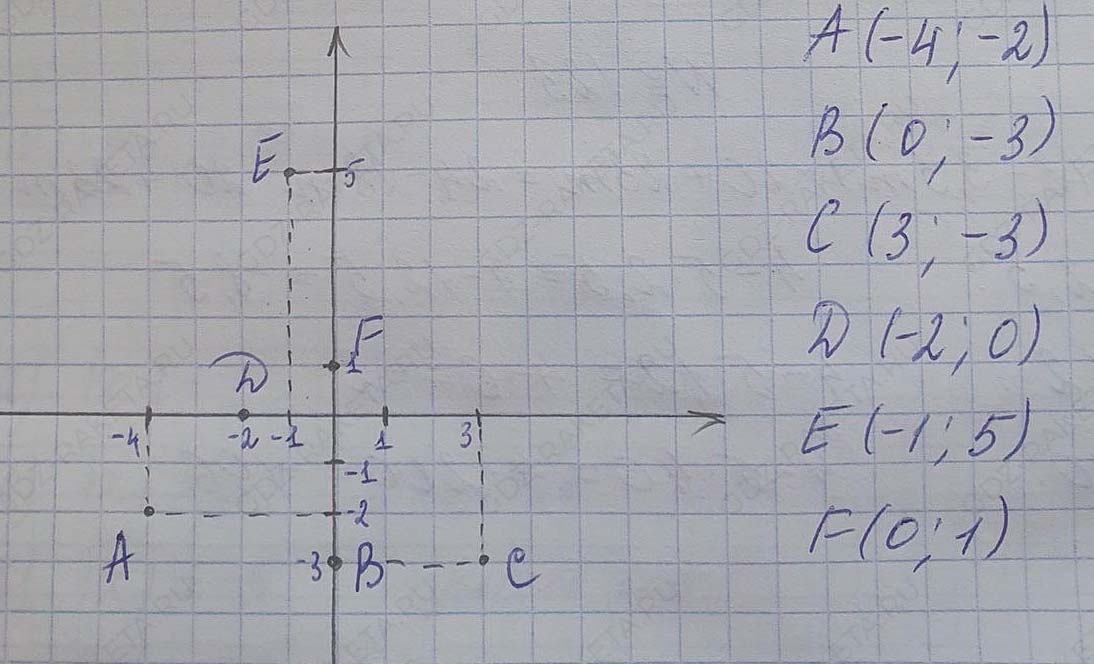 A (-4; -2)
B (0; -3)
C (3; -3)
D (-2; 0)
E (-1; 5)
F (0; 1)
E 5
F
1
D
-4 -2 -1 1 3
-1
-2
A -3 B C